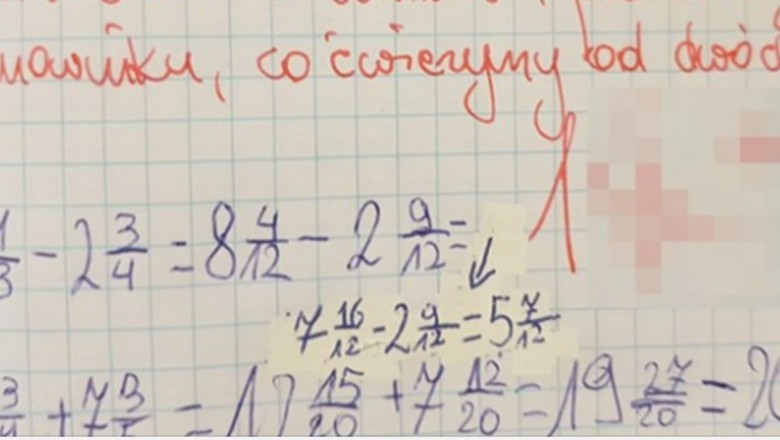 co ćwiczymy od dwóch
1
1/3 - 2 3/4 = 8 4/12 - 2 9/12 =
↓
7 16/12 - 2 9/12 = 5 7/12
3/4 + 7 3/5 = 12 15/20 + 7 12/20 = 19 27/20 = 20